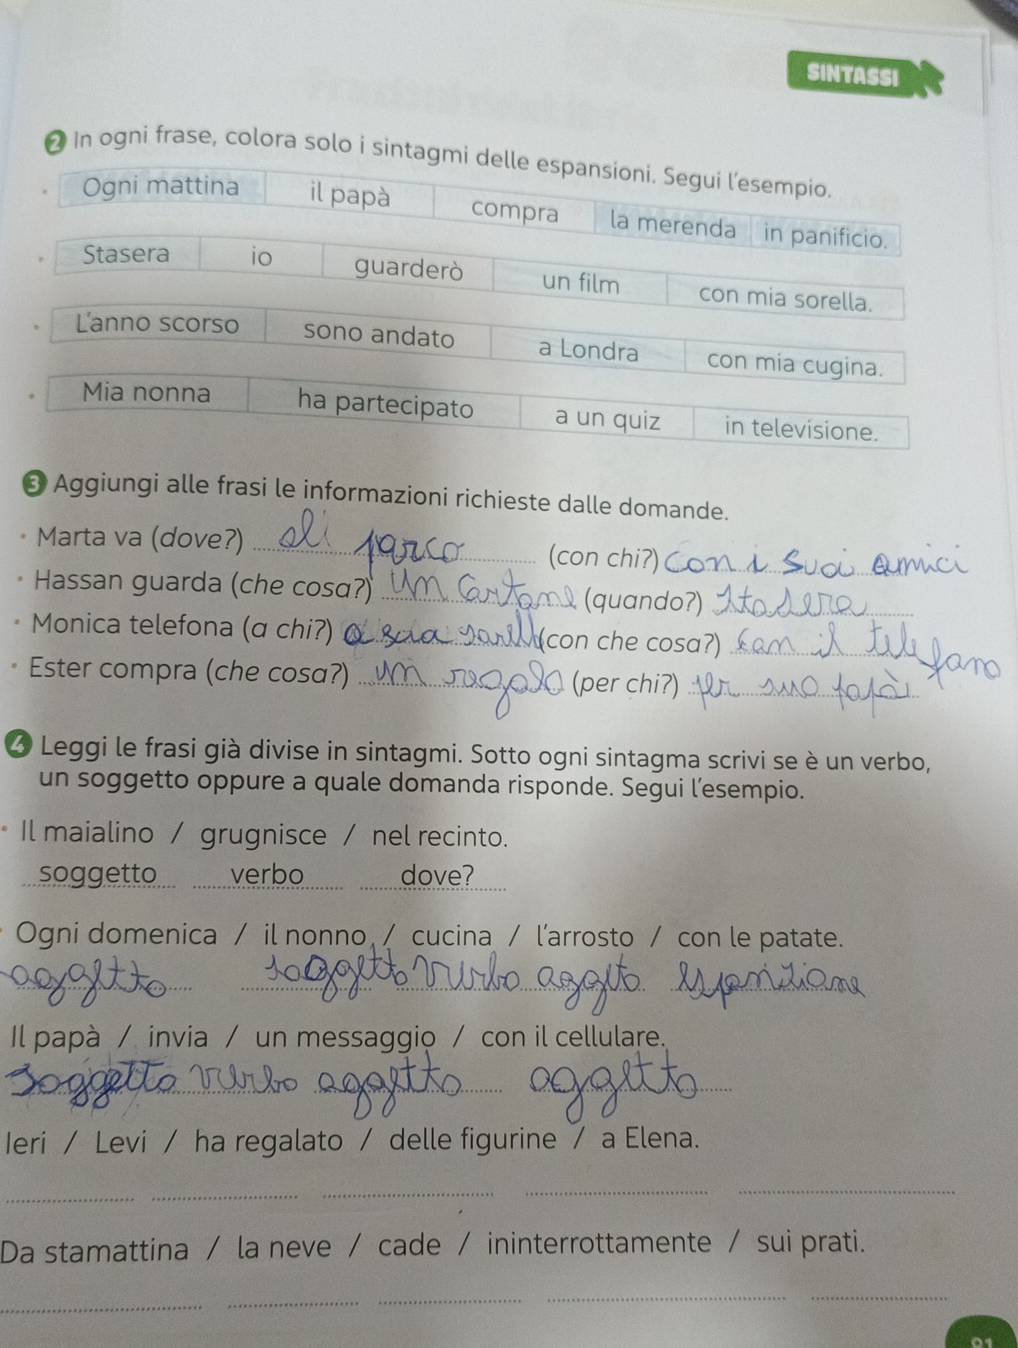 SINTASSI
2 In ogni frase, colora solo i sintagmi delle espansioni. Segui l'esempio.
• Ogni mattina il papà compra la merenda in panificio.
• Stasera io guarderò un film con mia sorella.
• L'anno scorso sono andato a Londra con mia cugina.
• Mia nonna ha partecipato a un quiz in televisione.
3 Aggiungi alle frasi le informazioni richieste dalle domande.
• Marta va (dove?) al parco (con chi?) con i suoi amici
• Hassan guarda (che cosa?) un cartone (quando?) stasera
• Monica telefona (a chi?) a sua sorella (con che cosa?) con il telefano
• Ester compra (che cosa?) un regalo (per chi?) per suo papà
4 Leggi le frasi già divise in sintagmi. Sotto ogni sintagma scrivi se è un verbo,
un soggetto oppure a quale domanda risponde. Segui l'esempio.
• Il maialino / grugnisce / nel recinto.
soggetto verbo dove?
• Ogni domenica / il nonno / cucina / l'arrosto / con le patate.
soggetto verbo
Il papà / invia / un messaggio / con il cellulare.
soggetto verbo oggetto oggetto
Ieri / Levi / ha regalato / delle figurine / a Elena.
Da stamattina / la neve / cade / ininterrottamente / sui prati.
91